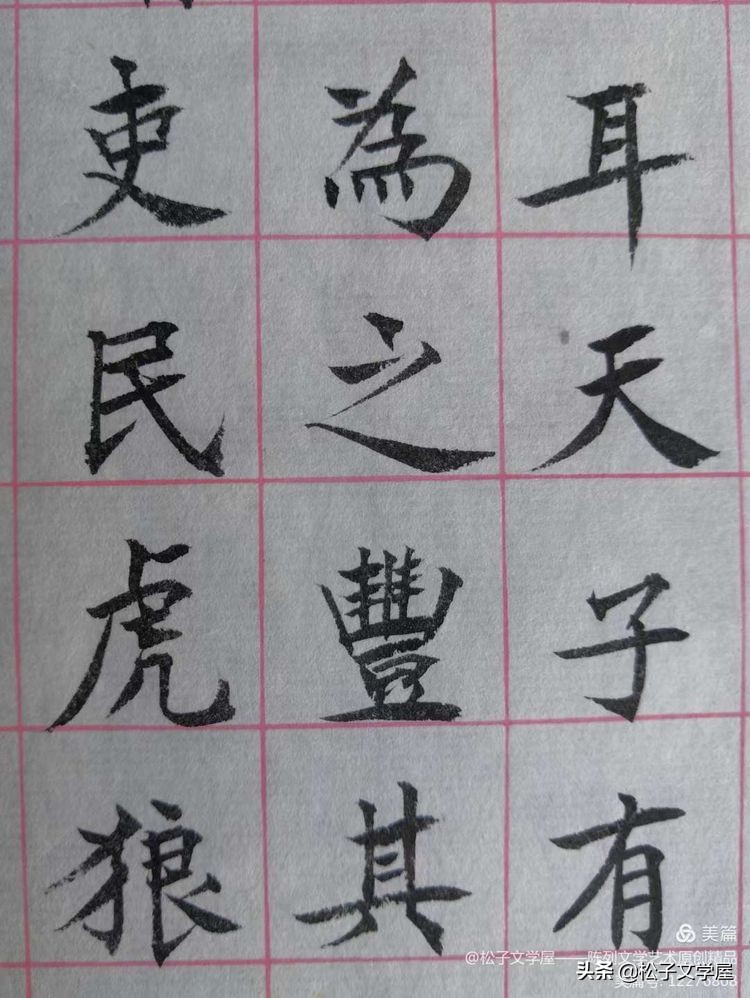 耳天子有
為之豐其
吏民虎狼
美篇
@松子文学屋——陈列文学艺术原创精品
头条 @松子文学屋